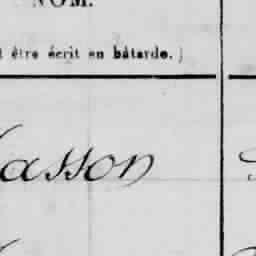 NOM.
être écrit en bâtarde.)
asson